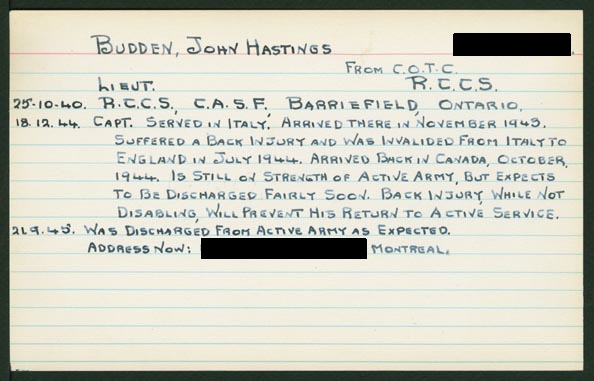 BUDDEN, JOHN HASTINGS
FROM C.O.T.C.
LIEUT. R.C.C.S.
25-10-40. R.C.C.S., C.A.S.F., BARRIEFIELD, ONTARIO.
18.12.44. CAPT. SERVED IN ITALY, ARRIVED THERE IN NOVEMBER 1943.
SUFFERED A BACK INJURY AND WAS INVALIDED FROM ITALY TO
ENGLAND IN JULY 1944. ARRIVED BACK IN CANADA, OCTOBER,
1944. IS STILL ON STRENGTH OF ACTIVE ARMY, BUT EXPECTS
TO BE DISCHARGED FAIRLY SOON. BACK INJURY, WHILE NOT
DISABLING, WILL PREVENT HIS RETURN TO ACTIVE SERVICE.
21.9.45. WAS DISCHARGED FROM ACTIVE ARMY AS EXPECTED.
ADDRESS NOW: MONTREAL.